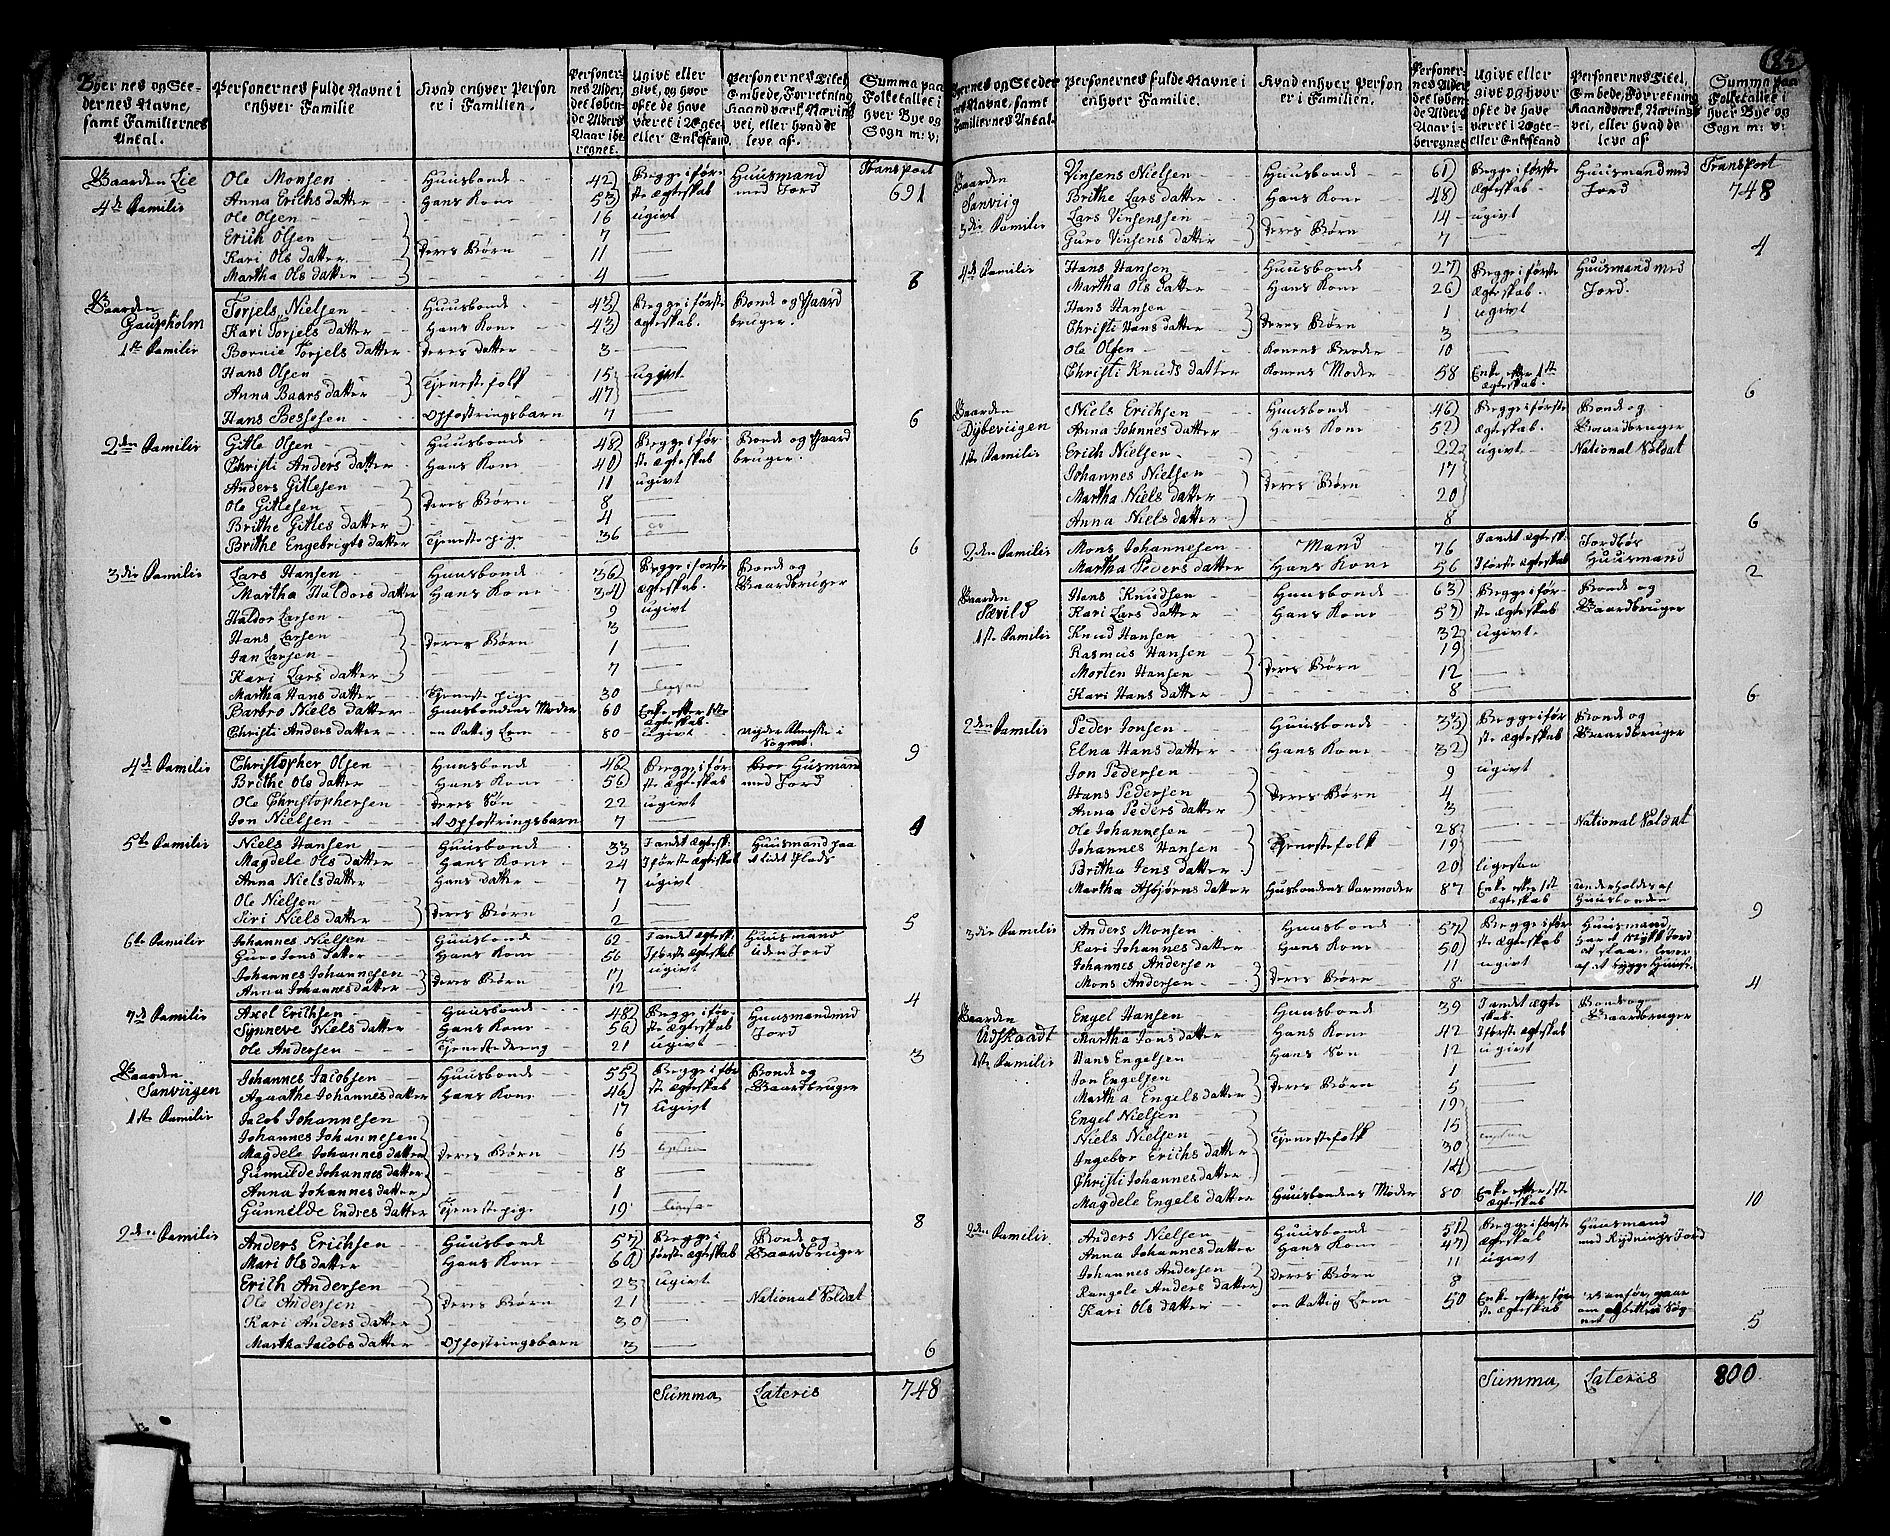 185
Byernes og Stedernes Navne, samt Familiernes Antal.
Personernes fulde Navne i enhver Familie
Hvad enhver Person er i Familien.
Personernes Alder, det løbende Alders Aar iberegnet.
Ugivt eller givt, og hvor ofte de have været i Ægte- eller Enkestand
Personernes Titel, Embede, Forretning, Haandværk, Nærings vei, eller hvad de leve af.
Summa paa Folketallet i hver Bye og Sogn m: v:
Gaarden Lie Ole Monsen Huusbonde 42 Begge i første Ægteskab Huusmand med Jord Transport 691
4de Familie Anna Erichs datter Hans Kone 53
Ole Olsen 16 ugivt
Erich Olsen 7
Kari Ols datter Deres Børn 11
Martha Ols datter 4 6
Gaarden Gaupholm Torjels Nielsen Huusbonde 43 Begge i første Ægteskab. Bonde og Gaardbruger.
1ste Familie Kari Torjels datter Hans Kone 43
Bornie Torjels datter Deres datter 3
Hans Olsen 15 ugivt
Anna Baars datter Tjenestefolk 47
Hans Bessesen Opfostringsbarn 7 6
2den Familie Gitle Olsen Huusbonde 48 Begge i første Ægteskab Bonde og Gaardbruger.
Christi Anders datter Hans Kone 40
Anders Gitlesen 11 ugivt
Ole Gitlesen Deres Børn 8
Brithe Gitles datter 4
Brithe Engebrigts datter Tjenestepige 36 6
3die Familie Lars Hansen Huusbonde 36 Begge i første Ægteskab. Bonde og Gaardbruger
Martha Haldors datter Hans Kone 34
Haldor Larsen 9 ugivt
Hans Larsen 3
Jan Larsen Deres Børn 1
Kari Lars datter 7
Martha Hans datter Tjenestepige 30
Barbro Niels datter Huusbondens Moder 60 Enke efter 1ste Ægteskab.
Christi Anders datter en Fattig Lem 80 ugivt Nyder Almisse i Sognet 9
4de Familie Christopher Olsen Huusbonde 46 Begge i første Ægteskab Husmand med Jord
Brithe Ols datter Hans Kone 56
Ole Christophersen Deres Søn 22 ugivt
Jon Nielsen Opfostringsbarn 7 4
5te Familie Niels Hansen Huusbonde 33 I andet Ægtesk: Huusmand paa
Magdele Ols datter Hans Kone 24 I første Ægteskab lidet Plads
Anna Niels datter Hans datter 7 ugivt
Ole Nielsen 1
Siri Niels datter Deres Børn 2 5
6te Familie Johannes Nielsen Huusbonde 62 I andet Ægtesk: Huusmand uden Jord
Guro Jons datter Hans Kone 56 I første Ægteskab
Johannes Johannesen 17 ugivt
Anna Johannesdatter Deres Børn 12 4
7de Familie Axel Erichsen Huusbonde 48 Begge i første Ægteskab Huusmand med Jord
Synneve Niels datter Hans Kone 56
Ole Andersen Tjenestedreng 21 ugivt 3
Gaarden Sanviigen Johannes Jacobsen Huusbonde 55 Begge i første Ægteskab Bonde og Gaardbruger
Agaathe Johannesdatter Hans Kone 46
1ste Familie Jacob Johannesen 17 ugivt
Johannes Johannesen 6
Magdele Johannesdatter Deres Børn 15
Gunnilde Johannesdatter 8
Anna Johannesdatter 1
Gunnilde Endres datter Tjenestepige 19 8
2den Familie Anders Erichsen Huusbonde 57 Begge i første Ægteskab Bonde og Gaardbruger
Mari Ols datter Hans Kone 60
Erich Andersen 23 ugivt
Ole Andersen Deres Børn 21 National Soldat
Kari Anders datter 30
Martha Jacobs datter Opfostringsbarn 3 6
Summa Lateris 748
Byernes og Stedernes Navne, samt Familiernes Antal.
Personernes fulde Navne i enhver Familie.
Hvad enhver Person er i Familien.
Personernes Alder, det løbende Alders Aar iberegnet
Ugivt eller givt og hvor ofte de have været i Ægte- eller Enkestand
Personernes Titel, Embede, Forretning, Haandværk, Nærings vei, eller hvad de leve af
Summa paa Folketallet i hver Bye og Sogn m: v:
Gaarden Sanviig Vinsens Nielsen Huusbonde 61 Begge i første Ægteskab. Huusmand med Jord Transport 748
Brithe Lars datter Hans Kone 48
3die Familie Lars Vinsenssen 14 ugivt
Guro Vinsens datter Deres Børn 7 4
4de Familie Hans Hansen Huusbonde 27 Begge i første Ægteskab. Huusmand med Jord.
Martha Ols datter Hans Kone 26
Hans Hansen 1 ugivt
Christi Hans datter Deres Børn 3
Ole Olsen Konens Broder 10
Christi Knuds datter Konens Moder 58 Enke efter 1ste Ægteskab. 6
Gaarden Dybeviigen Niels Erichsen Huusbonde 46 Begge i første Ægteskab. Bonde og Gaardbruger
Anna Johnes datter Hans Kone 52
1ste Familie Erich Nielsen 22 ugivt National Soldat
Johannes Nielsen 17
Martha Niels datter Deres Børn 20
Anna Niels datter 8 6
2den Familie Mons Johannesen Mand 76 I andet Ægtesk. Jordløs Huusmand
Martha Peders datter Hans Kone 56 I første Ægteskab 2
Gaarden Særild Hans Knudsen Huusbonde 63 Begge i første Ægteskab Bonde og Gaardbruger
Kari Lars datter Hans Kone 57
1ste Familie Knud Hansen 32 ugivt.
Rasmus Hansen 19
Morten Hansen Deres Børn 12
Kari Hans datter 8 6
2den Familie Peder Jonsen Huusbonde 33 Begge i første Ægteskab Bonde og Gaardbruger
Elna Hans datter Hans Kone 32
Jon Pedersen 9 ugivt
Hans Pedersen Deres Børn 4
Anna Peders datter 3
Ole Johannesen 28 National Soldat
Johannes Hansen Tjenestefolk 19
Britha Jens datter 20 ligesaa
Martha Asbjørns datter Husbondens Farmoder 87 Enke efter 1st Ægteskab Underholdes af Huusbonden 9
3die Familie Anders Monsen Huusbonde 57 Begge i første Ægteskab Huusmand,
Kari Johannes datter Hans Kone 50
Johannes Andersen 11 ugivt
Mons Andersen Deres Børn 8 4
Gaarden Udskaadt Engel Hansen Huusbonde 39 I andet Ægteskab. Bonde og Gaardbruger
Martha Jons datter Hans Kone 42 I første Ægteskab
1ste Familie Hans Engelsen Hans Søn 12 ugivt
Jon Engelsen 1
Martha Engels datter Deres Børn 5
Engel Nielsen 19
Niels Nielsen Tjenestefolk 15
Ingebor Erichs datter 30
Christi Johannes datter 14
Magdele Engels datter Huusbondens Moder 80 Enke efter 1ste Ægteskab 10
2den Familie Anders Nielsen Huusbonde 51 Begge i første Ægteskab Huusmand med Rydnings Jord
Anna Johannes datter Hans Kone 47
Johannes Andersen 11 ugivt
Rangele Anders datter Deres Børn 8
Kari Ols datter en Fattig Lem 50 Enke efter første Ægteskab Vanfør, gaar om 5
Summa Lateris 800